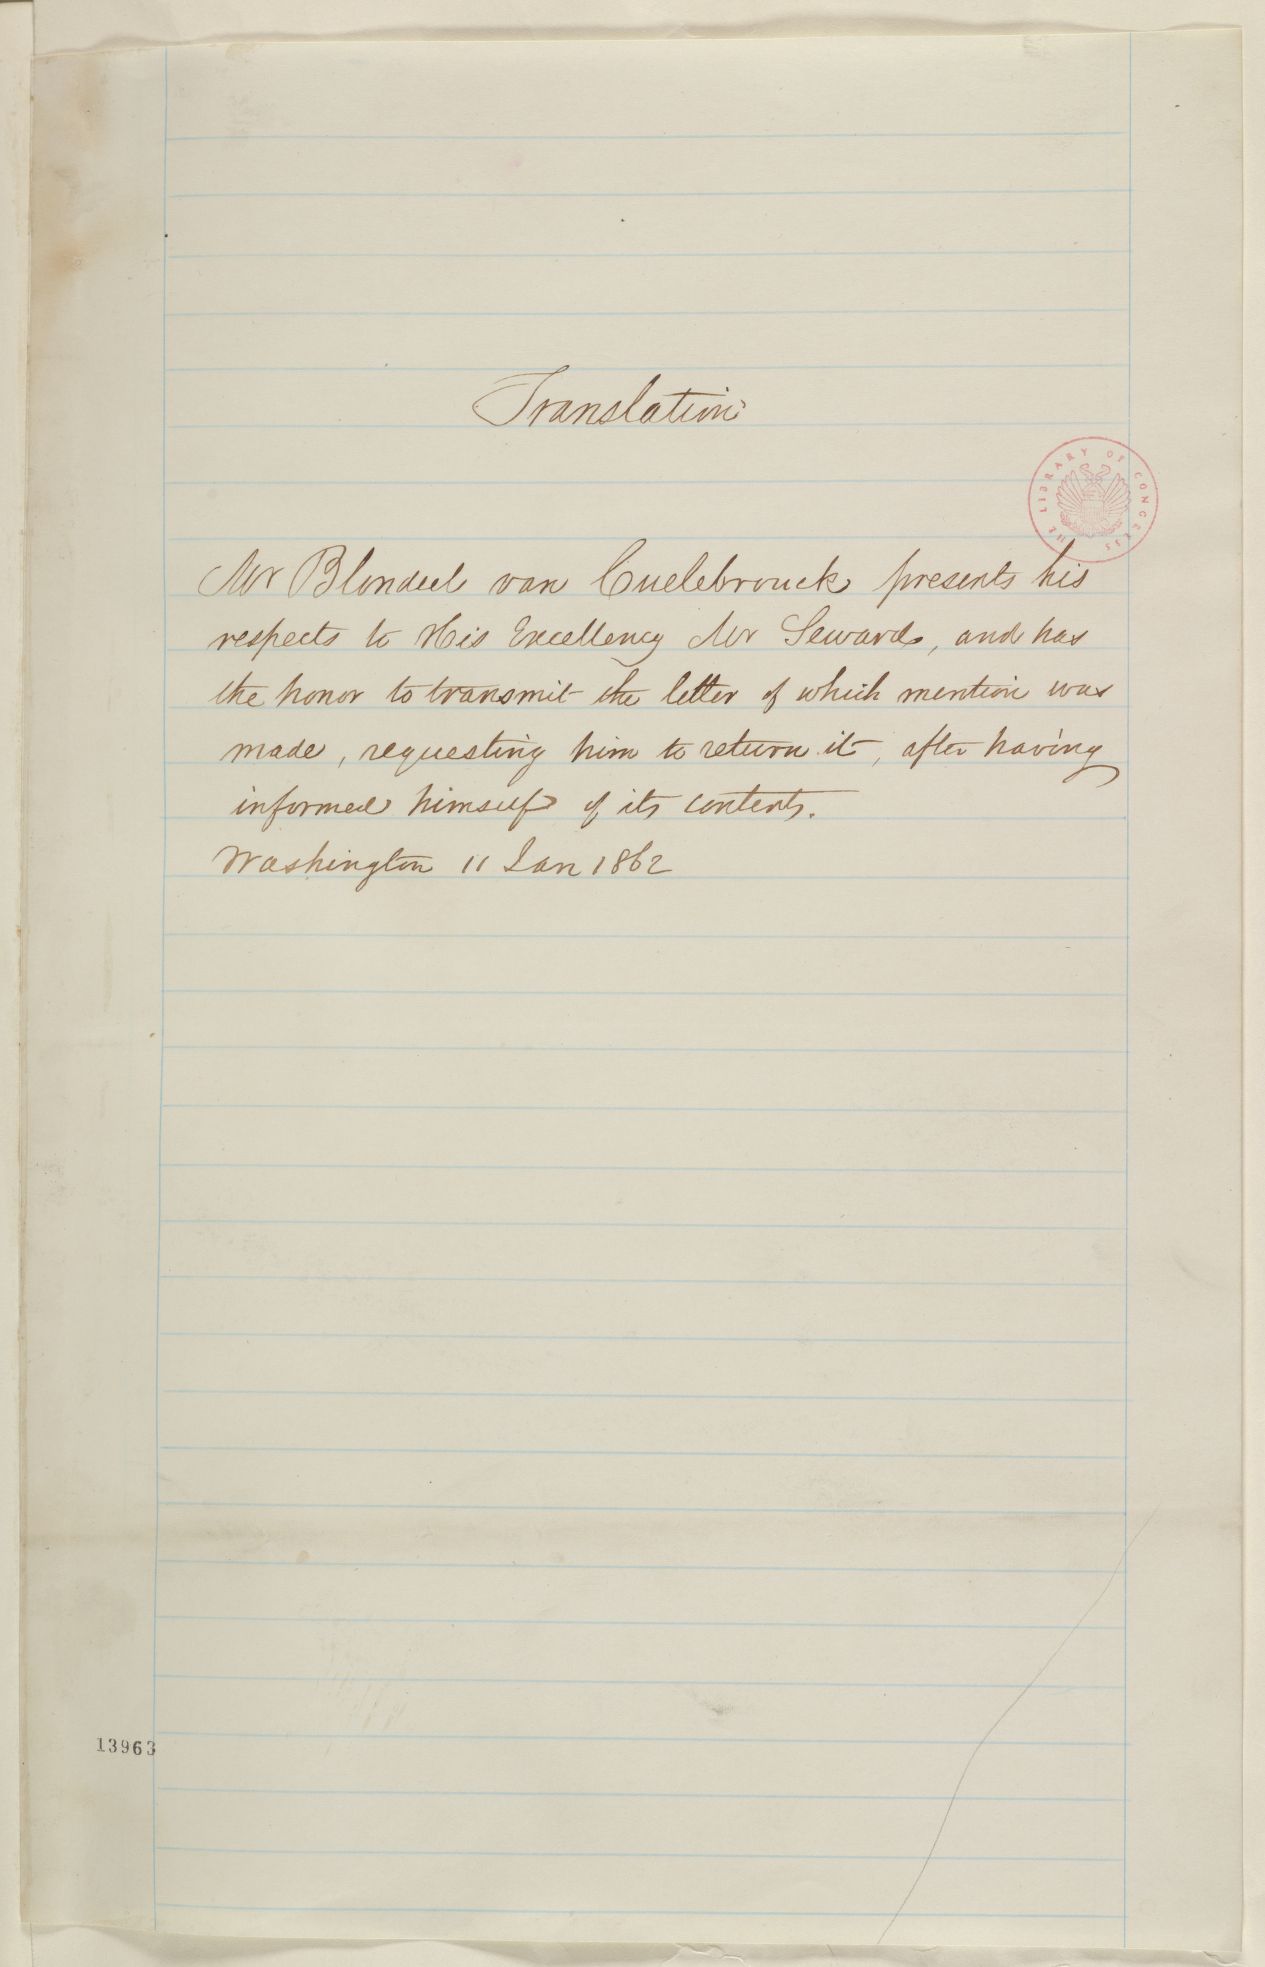 Translation
THE LIBRARY OF CONGRESS
Mr Blondeel van Cuelebrouck presents his
respects to His Excellency Mr Seward, and has
the honor to transmit the letter of which mention was
made, requesting him to return it, after having
informed himself of its contents.
Washington 11 Jan 1862
13963